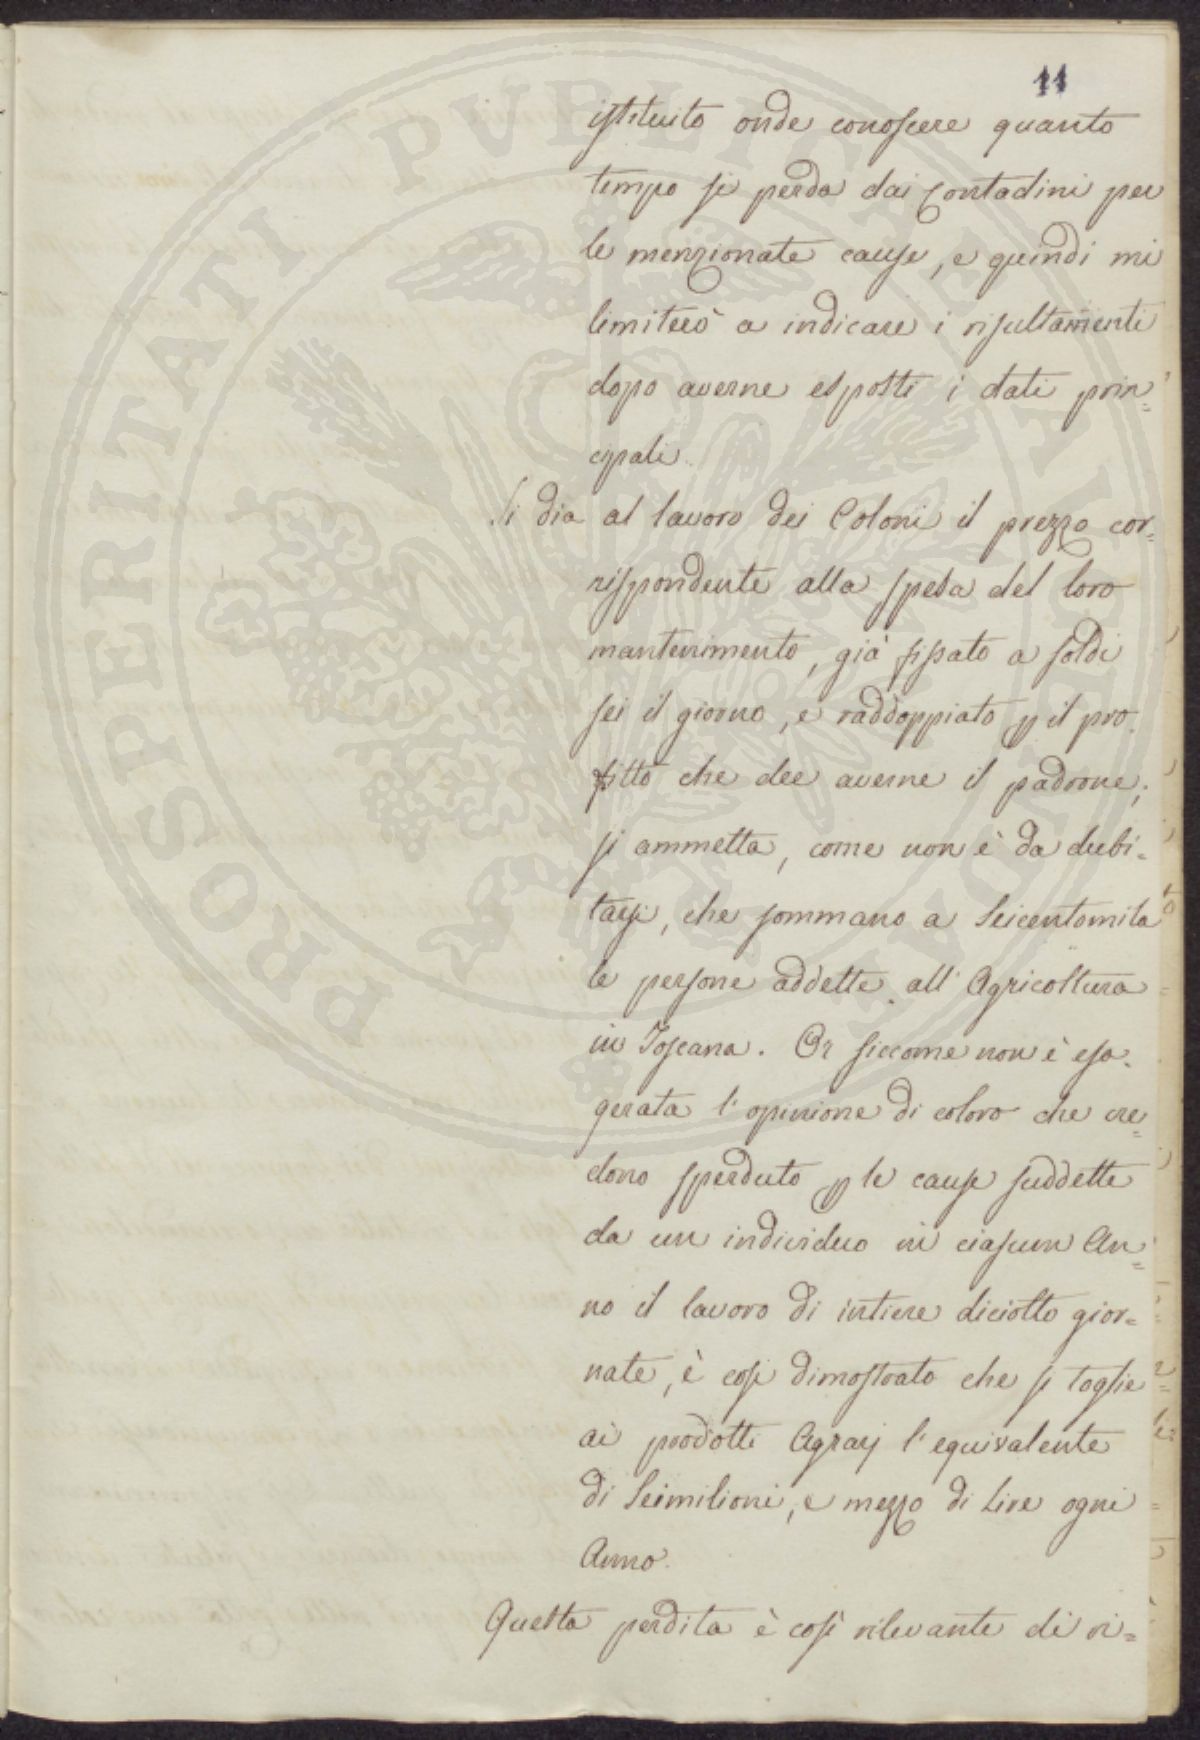 11
istituito onde conoscere quanto
tempo si perda dai Contadini per
le menzionate cause, e quindi mi
limiterò a indicare i risultamenti
dopo averne esposti i dati prin=
cipali.
Si dia al lavoro dei Coloni il prezzo cor=
rispondente alla spesa del loro
mantenimento, già fissato a soldi
sei il giorno, e raddoppiato p il pro-
fitto che dee averne il padrone;
si ammetta, come non è da dubi-
tarsi, che sommano a Seicentomila
le persone addette all' Agricoltura
in Toscana. Or siccome non è esa-
gerata l'opinione di coloro che cre=
dono sperduto p le cause suddette
da un individuo in ciascun An=
no il lavoro di intiere diciotto gior=
nate, è così dimostrato che si toglie
ai prodotti Agrarj l'equivalente
di Seimilioni, e mezzo di Lire ogni
Anno.
Questa perdita è così rilevante di ri=
PROSPERITATI PUBLICAE AUGENDAE